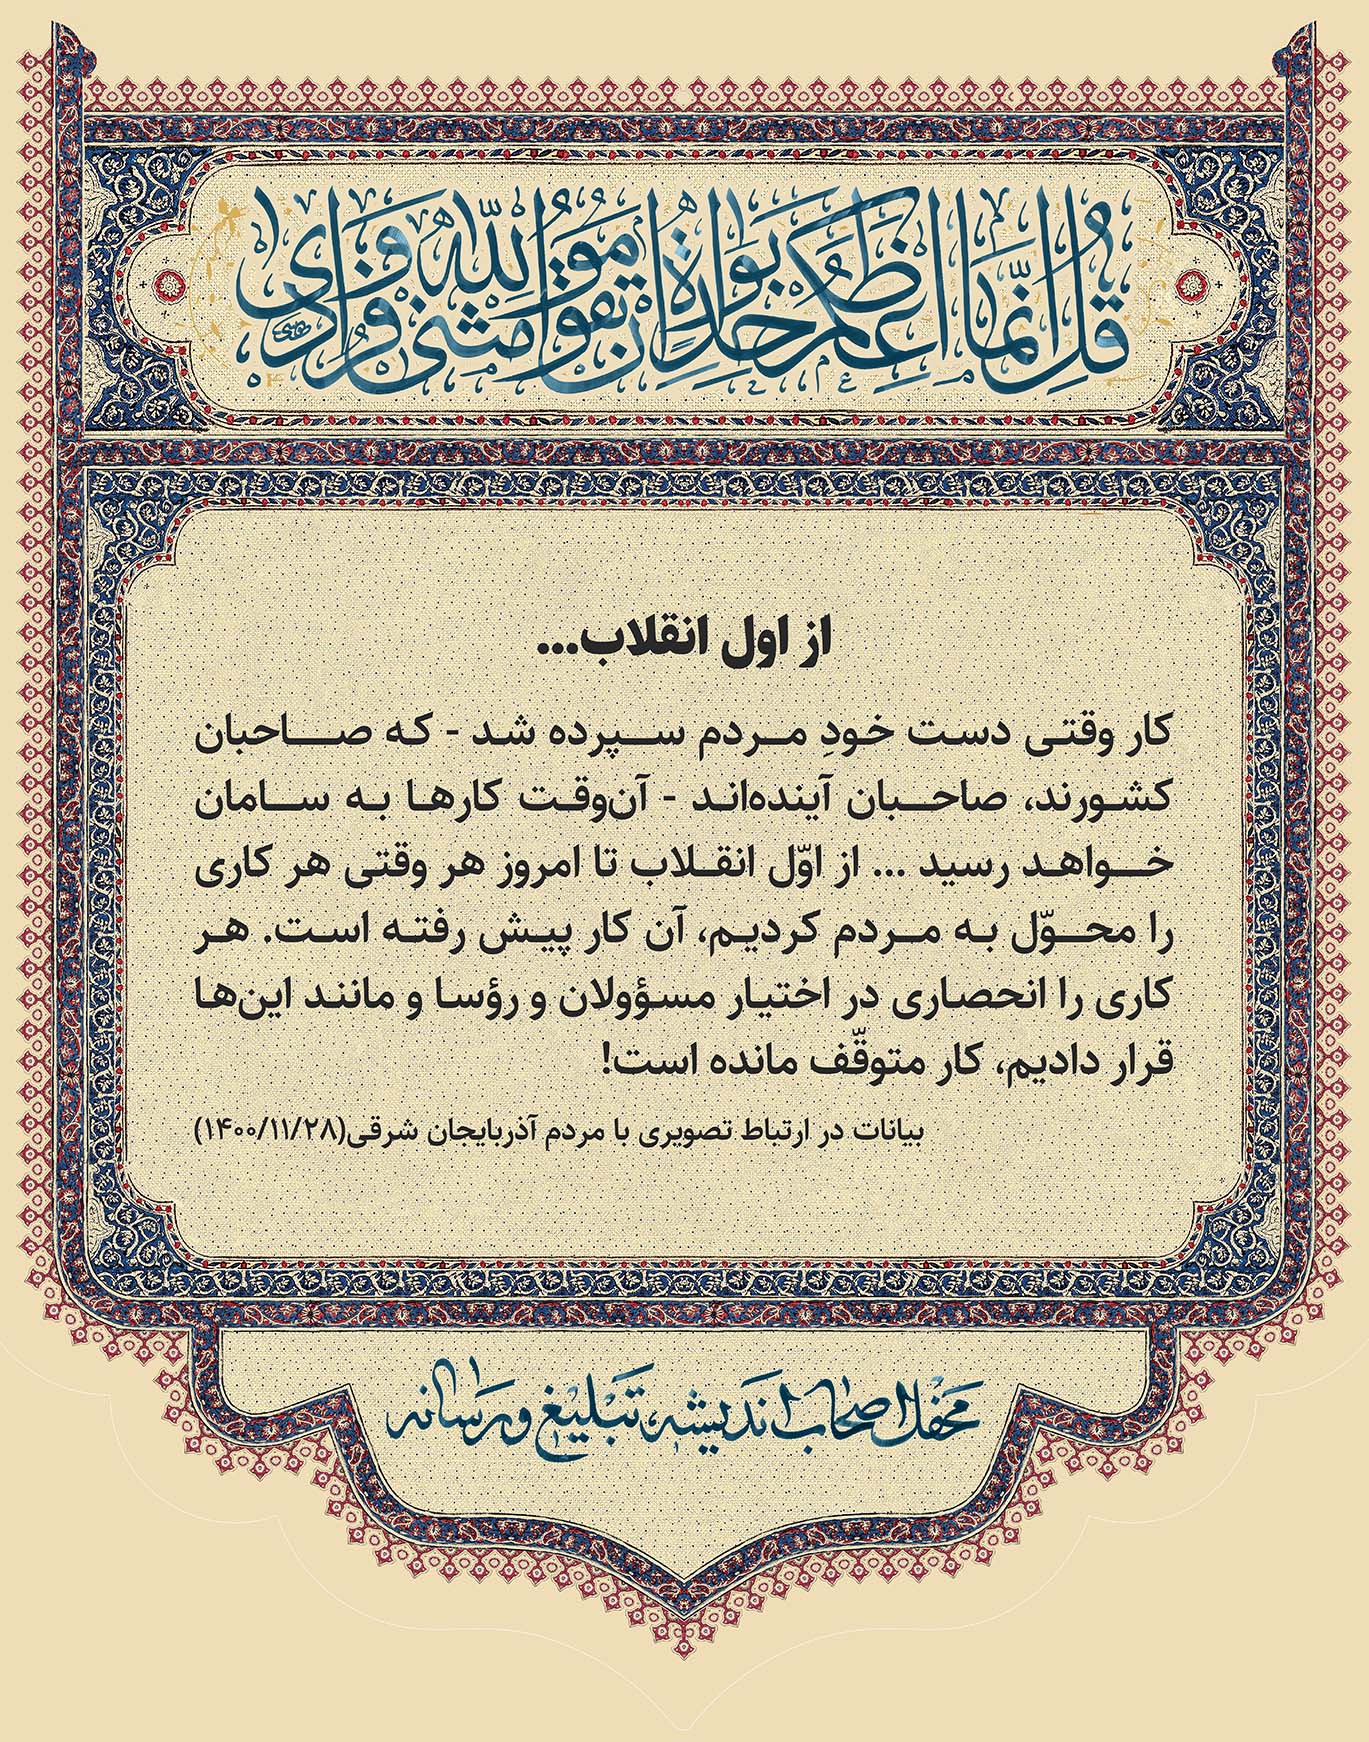 قُل اِنَّما اَعِظُكُم بِواحِدَةٍ اَن تَقوموا لِلّهِ مَثنى وَفُرادى
از اول انقلاب...
کار وقتی دست خودِ مردم سپرده شد - که صاحبان
کشورند، صاحبان آینده‌اند - آن‌وقت کارها به سامان
خواهد رسید ... از اوّل انقلاب تا امروز هر وقتی هر کاری
را محوّل به مردم کردیم، آن کار پیش رفته است. هر
کاری را انحصاری در اختیار مسؤولان و رؤسا و مانند این‌ها
قرار دادیم، کار متوقّف مانده است!
بیانات در ارتباط تصویری با مردم آذربایجان شرقی(۱۴۰۰/۱۱/۲۸)
محفل اصحاب اندیشه، تبلیغ و رسانه